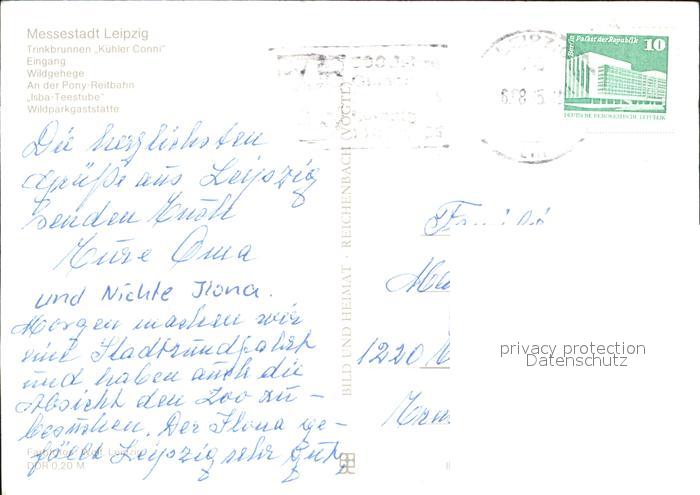 Messestadt Leipzig
Trinkbrunnen „Kühler Conni"
Eingang
Wildgehege
An der Pony-Reitbahn
„Isba-Teestube"
Wildparkgaststätte
Die herzlichsten
Grüße aus Leipzig
senden Euch
Eure Oma
und Nichte Ilona.
Morgen machen wir
eine Stadtrundfahrt
und haben auch die
Absicht den Zoo zu-
besuchen. Der Ilona ge-
fällt Leipzig sehr gut
DDR 0,20 M
BILD UND HEIMAT · REICHENBACH (VOGTL)
Berlin Palast der Republik
10
DEUTSCHE DEMOKRATISCHE REPUBLIK
1220
privacy protection
Datenschutz